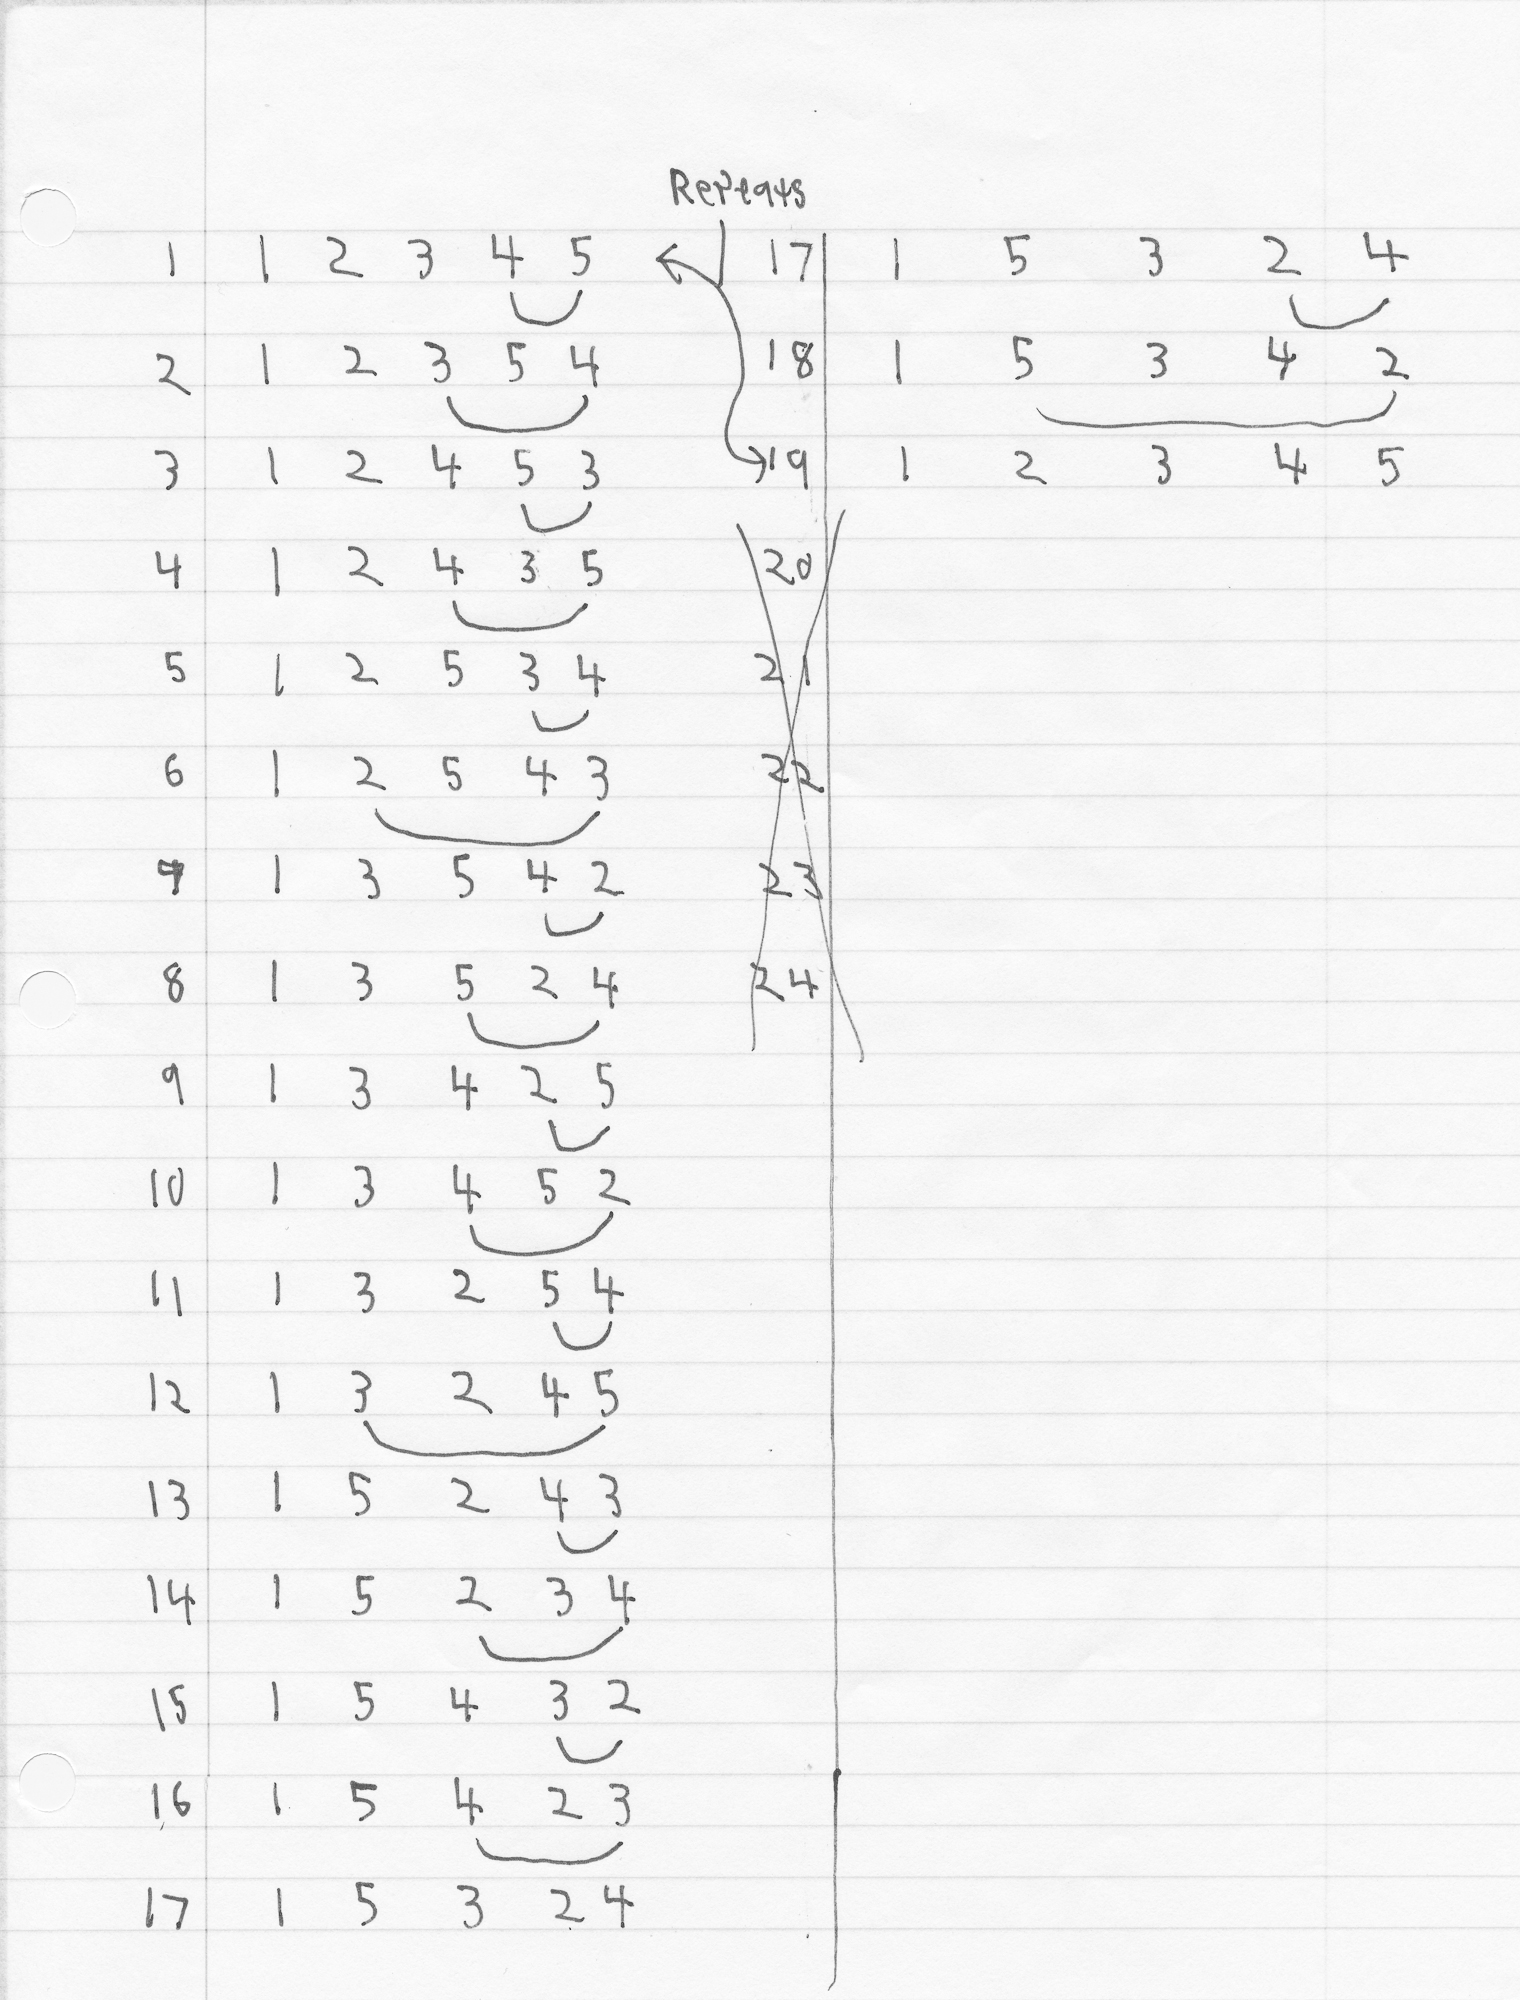 Repeats
1 1 2 3 4 5
2 1 2 3 5 4
3 1 2 4 5 3
4 1 2 4 3 5
5 1 2 5 3 4
6 1 2 5 4 3
7 1 3 5 4 2
8 1 3 5 2 4
9 1 3 4 2 5
10 1 3 4 5 2
11 1 3 2 5 4
12 1 3 2 4 5
13 1 5 2 4 3
14 1 5 2 3 4
15 1 5 4 3 2
16 1 5 4 2 3
17 1 5 3 2 4
17 1 5 3 2 4
18 1 5 3 4 2
19 1 2 3 4 5
20
21
22
23
24